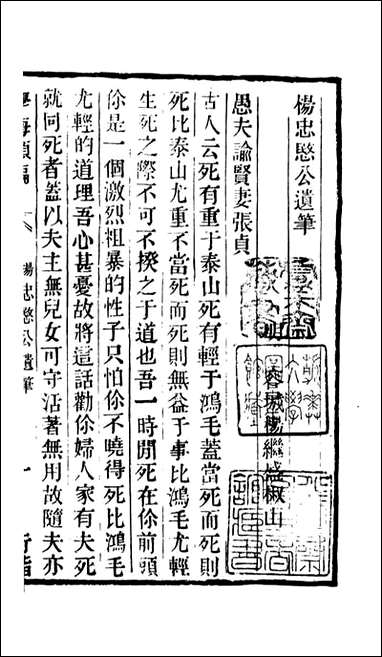 楊忠愍公遺筆
明 容城楊繼盛椒山
愚夫諭賢妻張貞
古人云死有重于泰山死有輕于鴻毛蓋當死而死則
死比泰山尤重不當死而死則無益于事比鴻毛尤輕
生死之際不可不揆之于道也吾一時閒死在你前頭
你是一個激烈祖暴的性子只怕你不曉得死比鴻毛
尤輕的道理吾心甚憂故將這話勸你婦人家有夫死
就同死者蓋以夫主無兒女可守活著無用故隨夫亦
學海類編 楊忠愍公遺筆 一